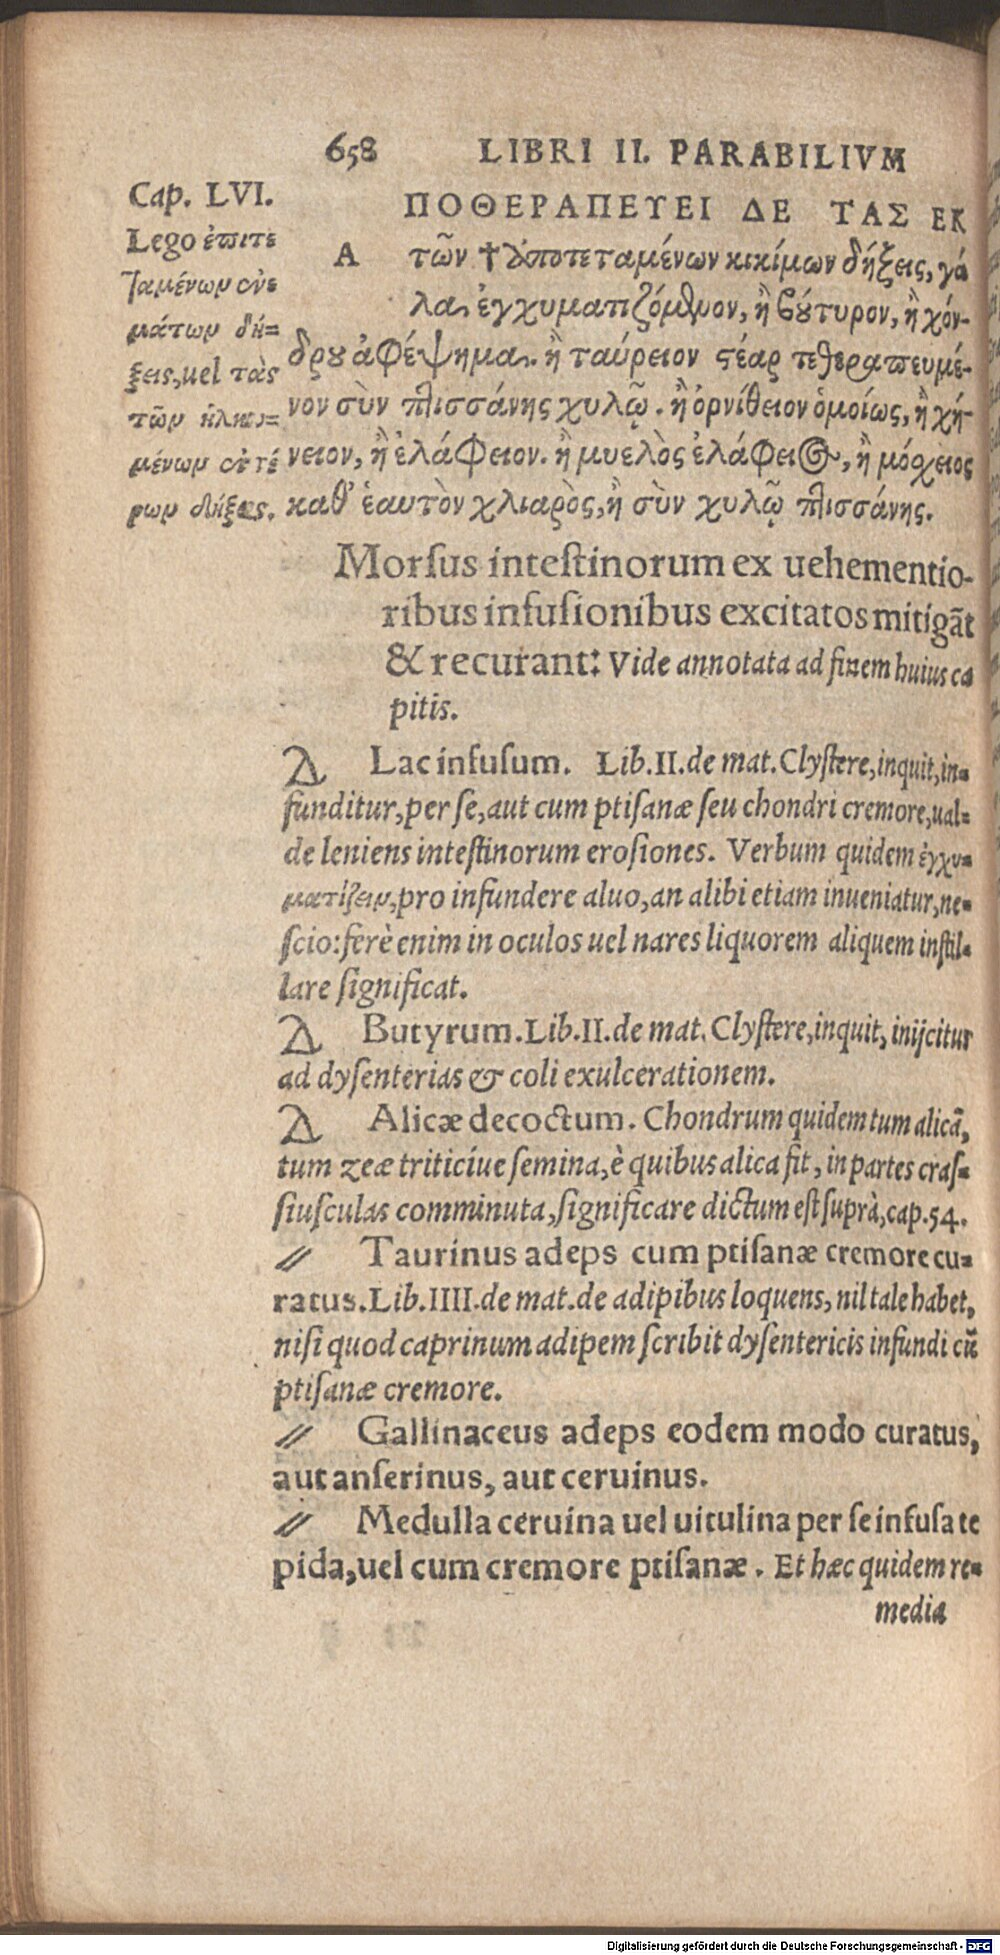 658 LIBRI II. PARABILIVM
Cap. LVI.
Lego ἐπιτε
ταμένων ἐνε
μάτων δή=
ξεις, uel τὰς
τῶν ἡλκω=
μένων ἐντέ
ρων δήξεις.
ΠΟΘΕΡΑΠΕΥΕΙ ΔΕ ΤΑΣ ΕΚ
Α τῶν † ὑποτεταμένων κικίμων δήξεις, γά
λα, ἐγχυματιζόμενον, ἢ βούτυρον, ἢ χόν-
δρου ἀφέψημα. ἢ ταύρειον στέαρ τεθεραπευμέ-
νον σὺν πτισσάνης χυλῷ. ἢ ὀρνίθειον ὁμοίως, ἢ χή-
νειον, ἢ ἐλάφειον. ἢ μυελὸς ἐλάφειος, ἢ μόσχειος
καθ' ἑαυτὸν χλιαρὸς, ἢ σὺν χυλῷ πτισσάνης.
Morſus inteſtinorum ex uehementio-
ribus infuſionibus excitatos mitigāt
& recurant: Vide annotata ad finem huius ca
pitis.
Lac infuſum. Lib.II.de mat. Clyſtere, inquit, in=
funditur, per ſe, aut cum ptiſanæ ſeu chondri cremore, ual=
de leniens inteſtinorum eroſiones. Verbum quidem ἐγχυ=
ματίζειν, pro infundere aluo, an alibi etiam inueniatur, ne=
ſcio: ferè enim in oculos uel nares liquorem aliquem inſtil=
lare ſignificat.
Butyrum. Lib.II.de mat. Clyſtere, inquit, inijcitur
ad dyſenterias & coli exulcerationem.
Alicæ decoctum. Chondrum quidem tum alicā,
tum zeæ triticiue ſemina, è quibus alica fit, in partes craſ=
ſiuſculas comminuta, ſignificare dictum eſt ſuprà, cap.54.
Taurinus adeps cum ptiſanæ cremore cu=
ratus. Lib.IIII.de mat.de adipibus loquens, nil tale habet,
niſi quod caprinum adipem ſcribit dyſentericis infundi cū
ptiſanæ cremore.
Gallinaceus adeps eodem modo curatus,
aut anſerinus, aut ceruinus.
Medulla ceruina uel uitulina per ſe infuſa te
pida, uel cum cremore ptiſanæ. Et hæc quidem re=
media
Digitalisierung gefördert durch die Deutsche Forschungsgemeinschaft - DFG